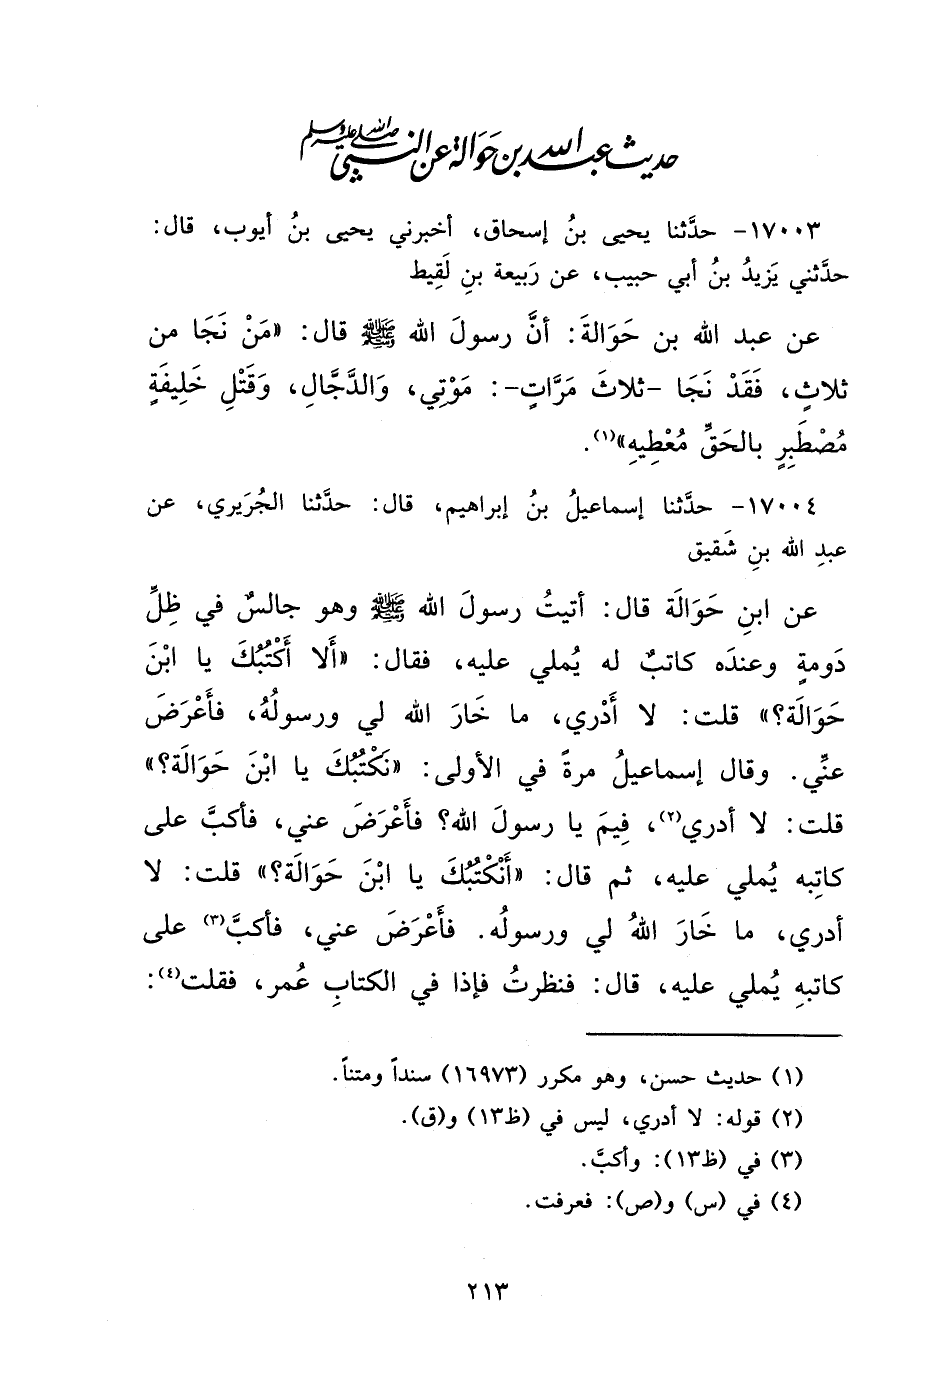 حديث عبد الله بن حَوَالة عن النبي صلى الله عليه وسلم
١٧٠٠٣- حدَّثنا يحيى بنُ إسحاق، أخبرني يحيى بنُ أيوب، قال:
حدَّثني يَزيدُ بنُ أبي حبيب، عن رَبيعة بنِ لَقِيط
عن عبد الله بن حَوَالةَ: أنَّ رسولَ الله ﷺ قال: «مَنْ نَجَا من
ثلاثٍ، فَقَدْ نَجَا -ثلاثَ مَرَّاتٍ-: مَوْتِي، وَالدَّجَّالِ، وَقَتْلِ خَلِيفَةٍ
مُصْطَبِرٍ بالحَقِّ مُعْطِيهِ»(١).
١٧٠٠٤- حدَّثنا إسماعيلُ بنُ إبراهيم، قال: حدَّثنا الجُرَيري، عن
عبدِ الله بنِ شَقيق
عن ابنِ حَوَالَة قال: أتيتُ رسولَ الله ﷺ وهو جالسٌ في ظِلِّ
دَومةٍ وعندَه كاتبٌ له يُملي عليه، فقال: «أَلا أَكْتُبُكَ يا ابْنَ
حَوَالَة؟» قلت: لا أَدْري، ما خَارَ الله لي ورسولُهُ، فأَعْرَضَ
عنِّي. وقال إسماعيلُ مرةً في الأولى: «نَكْتُبُكَ يا ابْنَ حَوَالَة؟»
قلت: لا أدري(٢)، فِيمَ يا رسولَ الله؟ فأَعْرَضَ عني، فأكبَّ على
كاتِبه يُملي عليه، ثم قال: «أَنَكْتُبُكَ يا ابْنَ حَوَالَة؟» قلت: لا
أدري، ما خَارَ اللهُ لي ورسولُه. فأَعْرَضَ عني، فأكبَّ(٣) على
كاتبهِ يُملي عليه، قال: فنظرتُ فإذا في الكتابِ عُمر، فقلت(٤):
(١) حديث حسن، وهو مكرر (١٦٩٧٣) سنداً ومتناً.
(٢) قوله: لا أدري، ليس في (ظ١٣) و(ق).
(٣) في (ظ١٣): وأكبَّ.
(٤) في (س) و(ص): فعرفت.
٢١٣